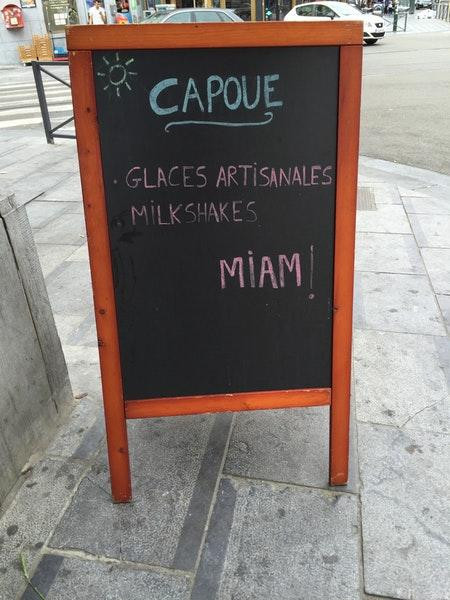 CAPOUE
GLACES ARTISANALES
MILKSHAKES
MIAM!